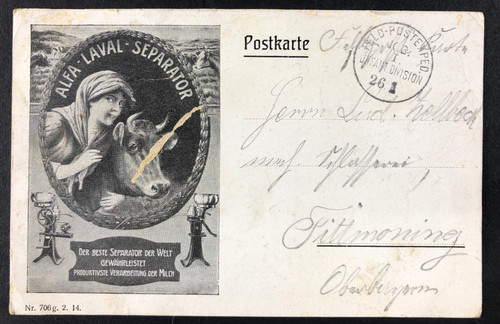 ALFA-LAVAL-SEPARATOR
DER BESTE SEPARATOR DER WELT
GEWÄHRLEISTET
PRODUKTIVSTE VERARBEITUNG DER MILCH
Nr. 706 g. 2. 14.
Postkarte
FELD-POSTEXPED.
K.B.
1.
DIVISION
26 1
Herrn Lud.
mech. Schlosserei,
Tittmoning
Oberbayern